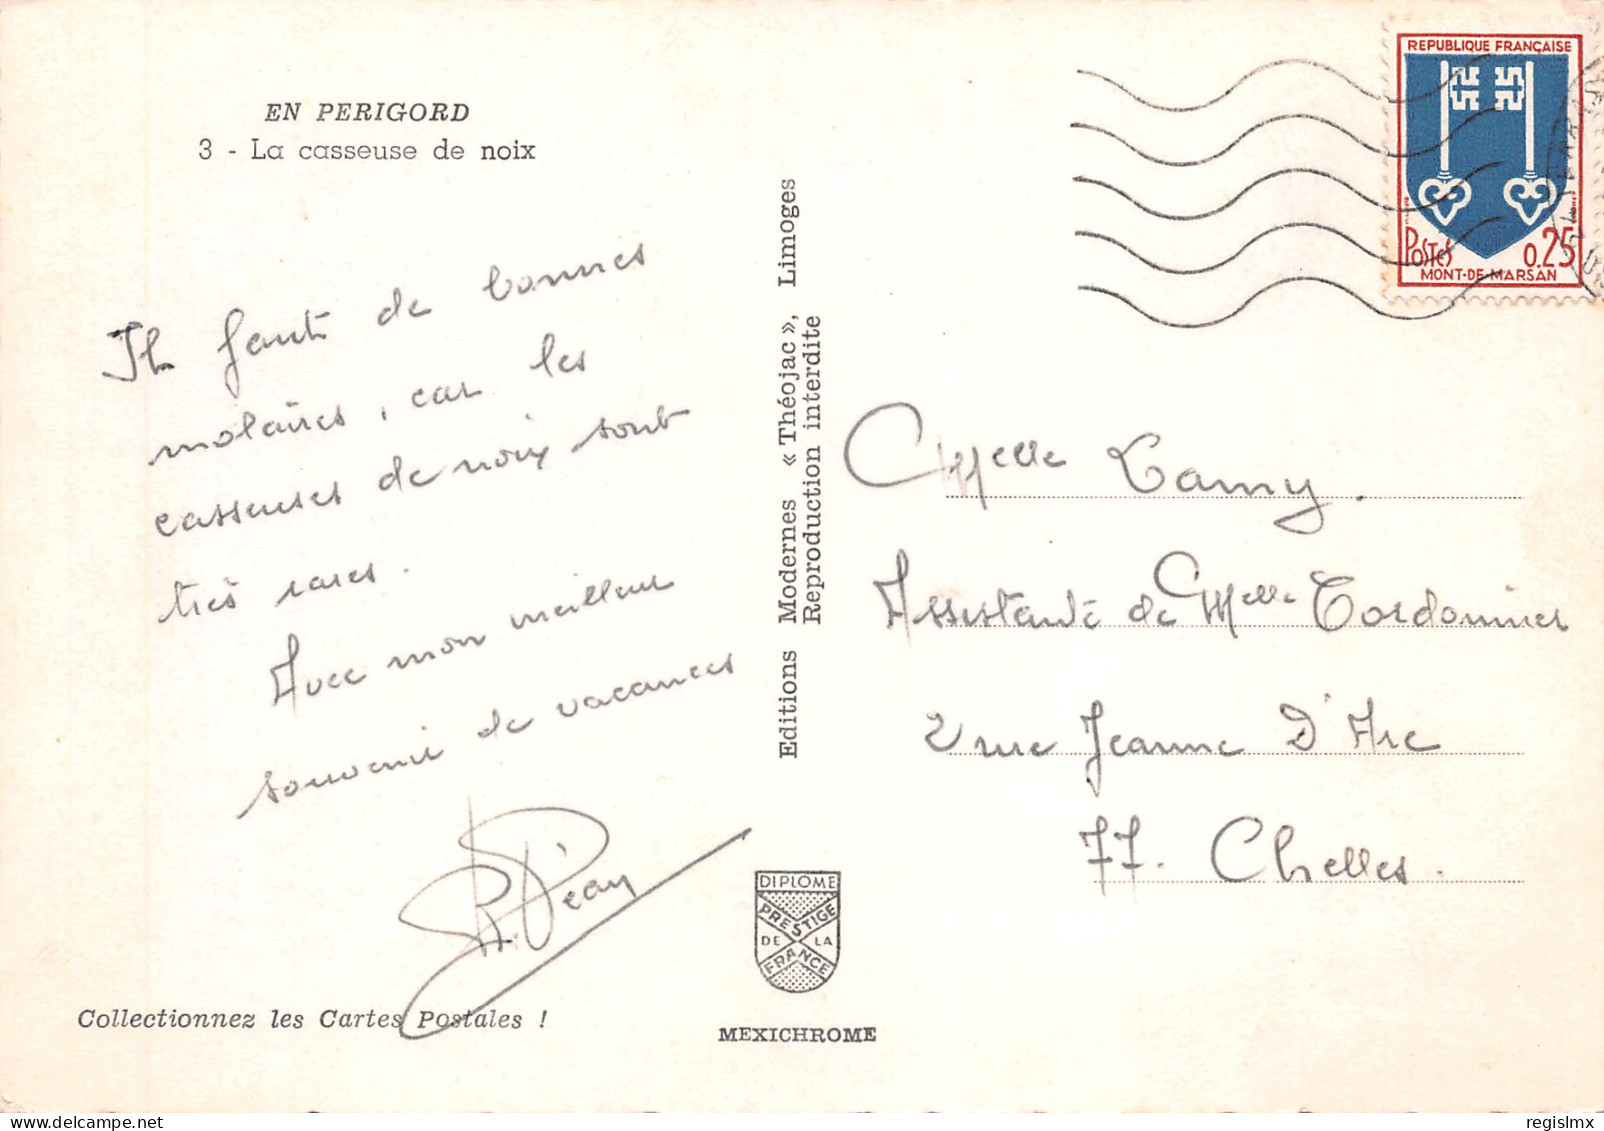 EN PERIGORD
3 - La casseuse de noix
Il faut de bonnes
molaires, car les
casseuses de noix sont
très rares.
Avec mon meilleur
souvenir de vacances
Collectionnez les Cartes Postales !
Editions Modernes « Théojac », Limoges
Reproduction interdite
DIPLOME
PRESTIGE
DE LA
FRANCE
MEXICHROME
REPUBLIQUE FRANÇAISE
POSTES 0,25
MONT-DE-MARSAN
Melle Lamy.
Assistante de Melle Cordonnier
2 rue Jeanne D'Arc
77. Chelles.
regislmx